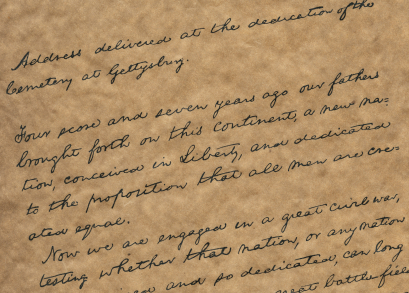 Address delivered at the dedication of the
Cemetery at Gettysburg.
Four score and seven years ago our fathers
brought forth on this continent, a new na-
tion, conceived in Liberty, and dedicated
to the proposition that all men are cre-
ated equal.
Now we are engaged in a great civil war,
testing whether that nation, or any nation
and so dedicated, can long
battle field